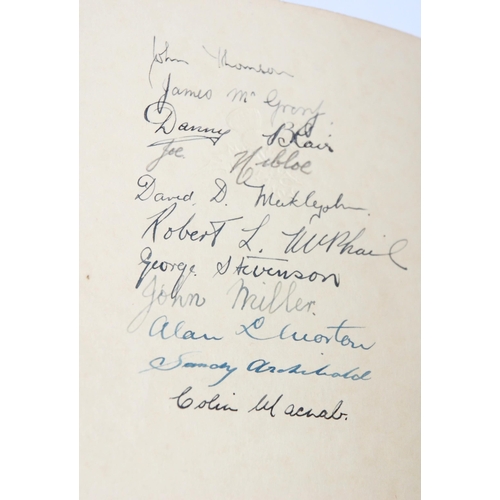 John Thomson
James McGrory
Danny Blair
Joe Nibloe
David D. Meiklejohn
Robert L. McPhail
George Stevenson
John Miller.
Alan L Morton
Sandy Archibald
Colin Macnab.